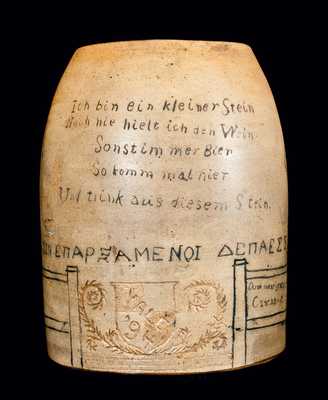 Ich bin ein kleiner Stein
Noch nie hielt ich den Wein
Sonst immer Bier
So komm mal hier
Und trink aus diesem Stein.
ΕΠΑΡΞΑΜΕΝΟΙ ΔΕΠΑΕΣΣ
YALE